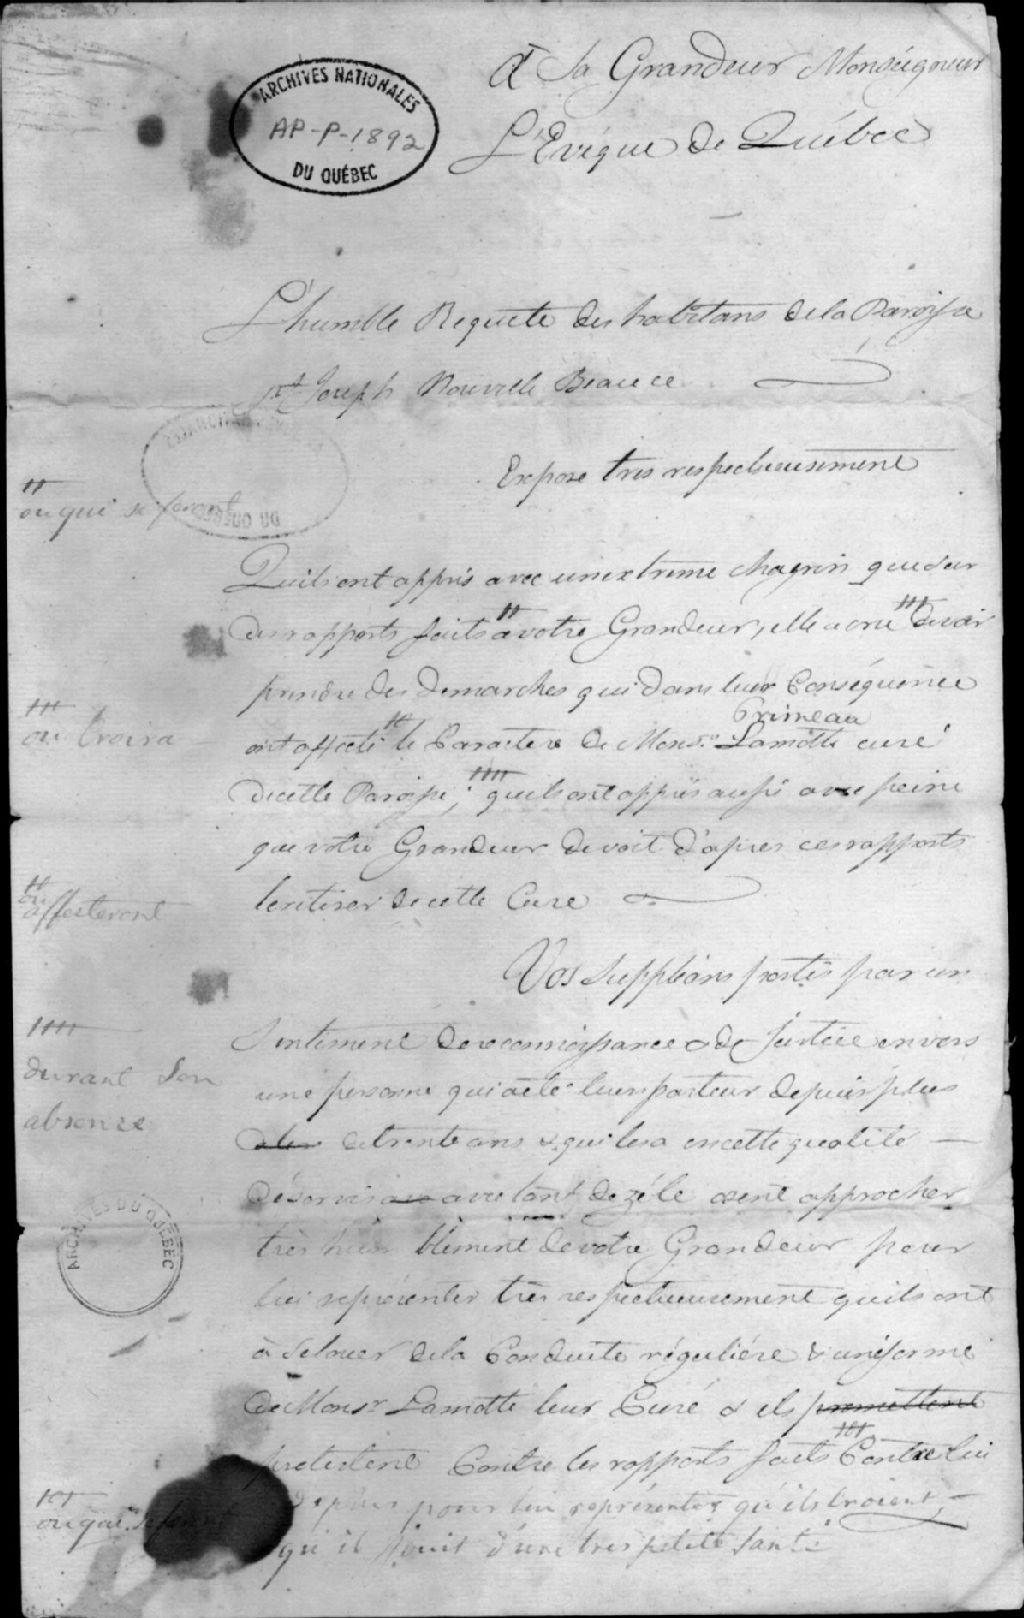 A Sa Grandeur Monseigneur
L'Evéque de Québec
ARCHIVES NATIONALES
AP-P-1892
DU QUÉBEC
L'humble Requete des habitans de la Paroisse
St Joseph Nouvelle Beauce
Expose tres respectueusement
ou qui se feront
DU QUÉBEC
Quils ont appris avec un extreme chagrin que sur
des rapports faits a votre Grandeur, elle a cru devoir
prendre des demarches qui dans leur Conséquence
ou croira
Primeau
ont affecté le Caractere de Monsr. Lamotte curé
de cette Paroisse; quils ont appris aussi avec peine
que votre Grandeur devoit d'apres ces rapports
le retirer de cette Cure
ou affecteront
Vos Supplians portés par un
Sentiment de reconnoissance & de Justice envers
durant son
absence
une personne qui a été leur pasteur depuis plus
de trente ans & qui les a en cette qualité
désservis avec tant de zéle osent approcher
très humblement de votre Grandeur pour
lui représenter très respectueusement quils ont
à se louer de la Conduite réguliére & uniforme
de Monsr Lamotte leur Curé & ils permettent
protestent Contre les rapports faits Contre lui
ou qui se feront
de plus pour lui représenter qu'ils croient
qu'il jouit d'une tres petite santé
ARCHIVES DU QUÉBEC